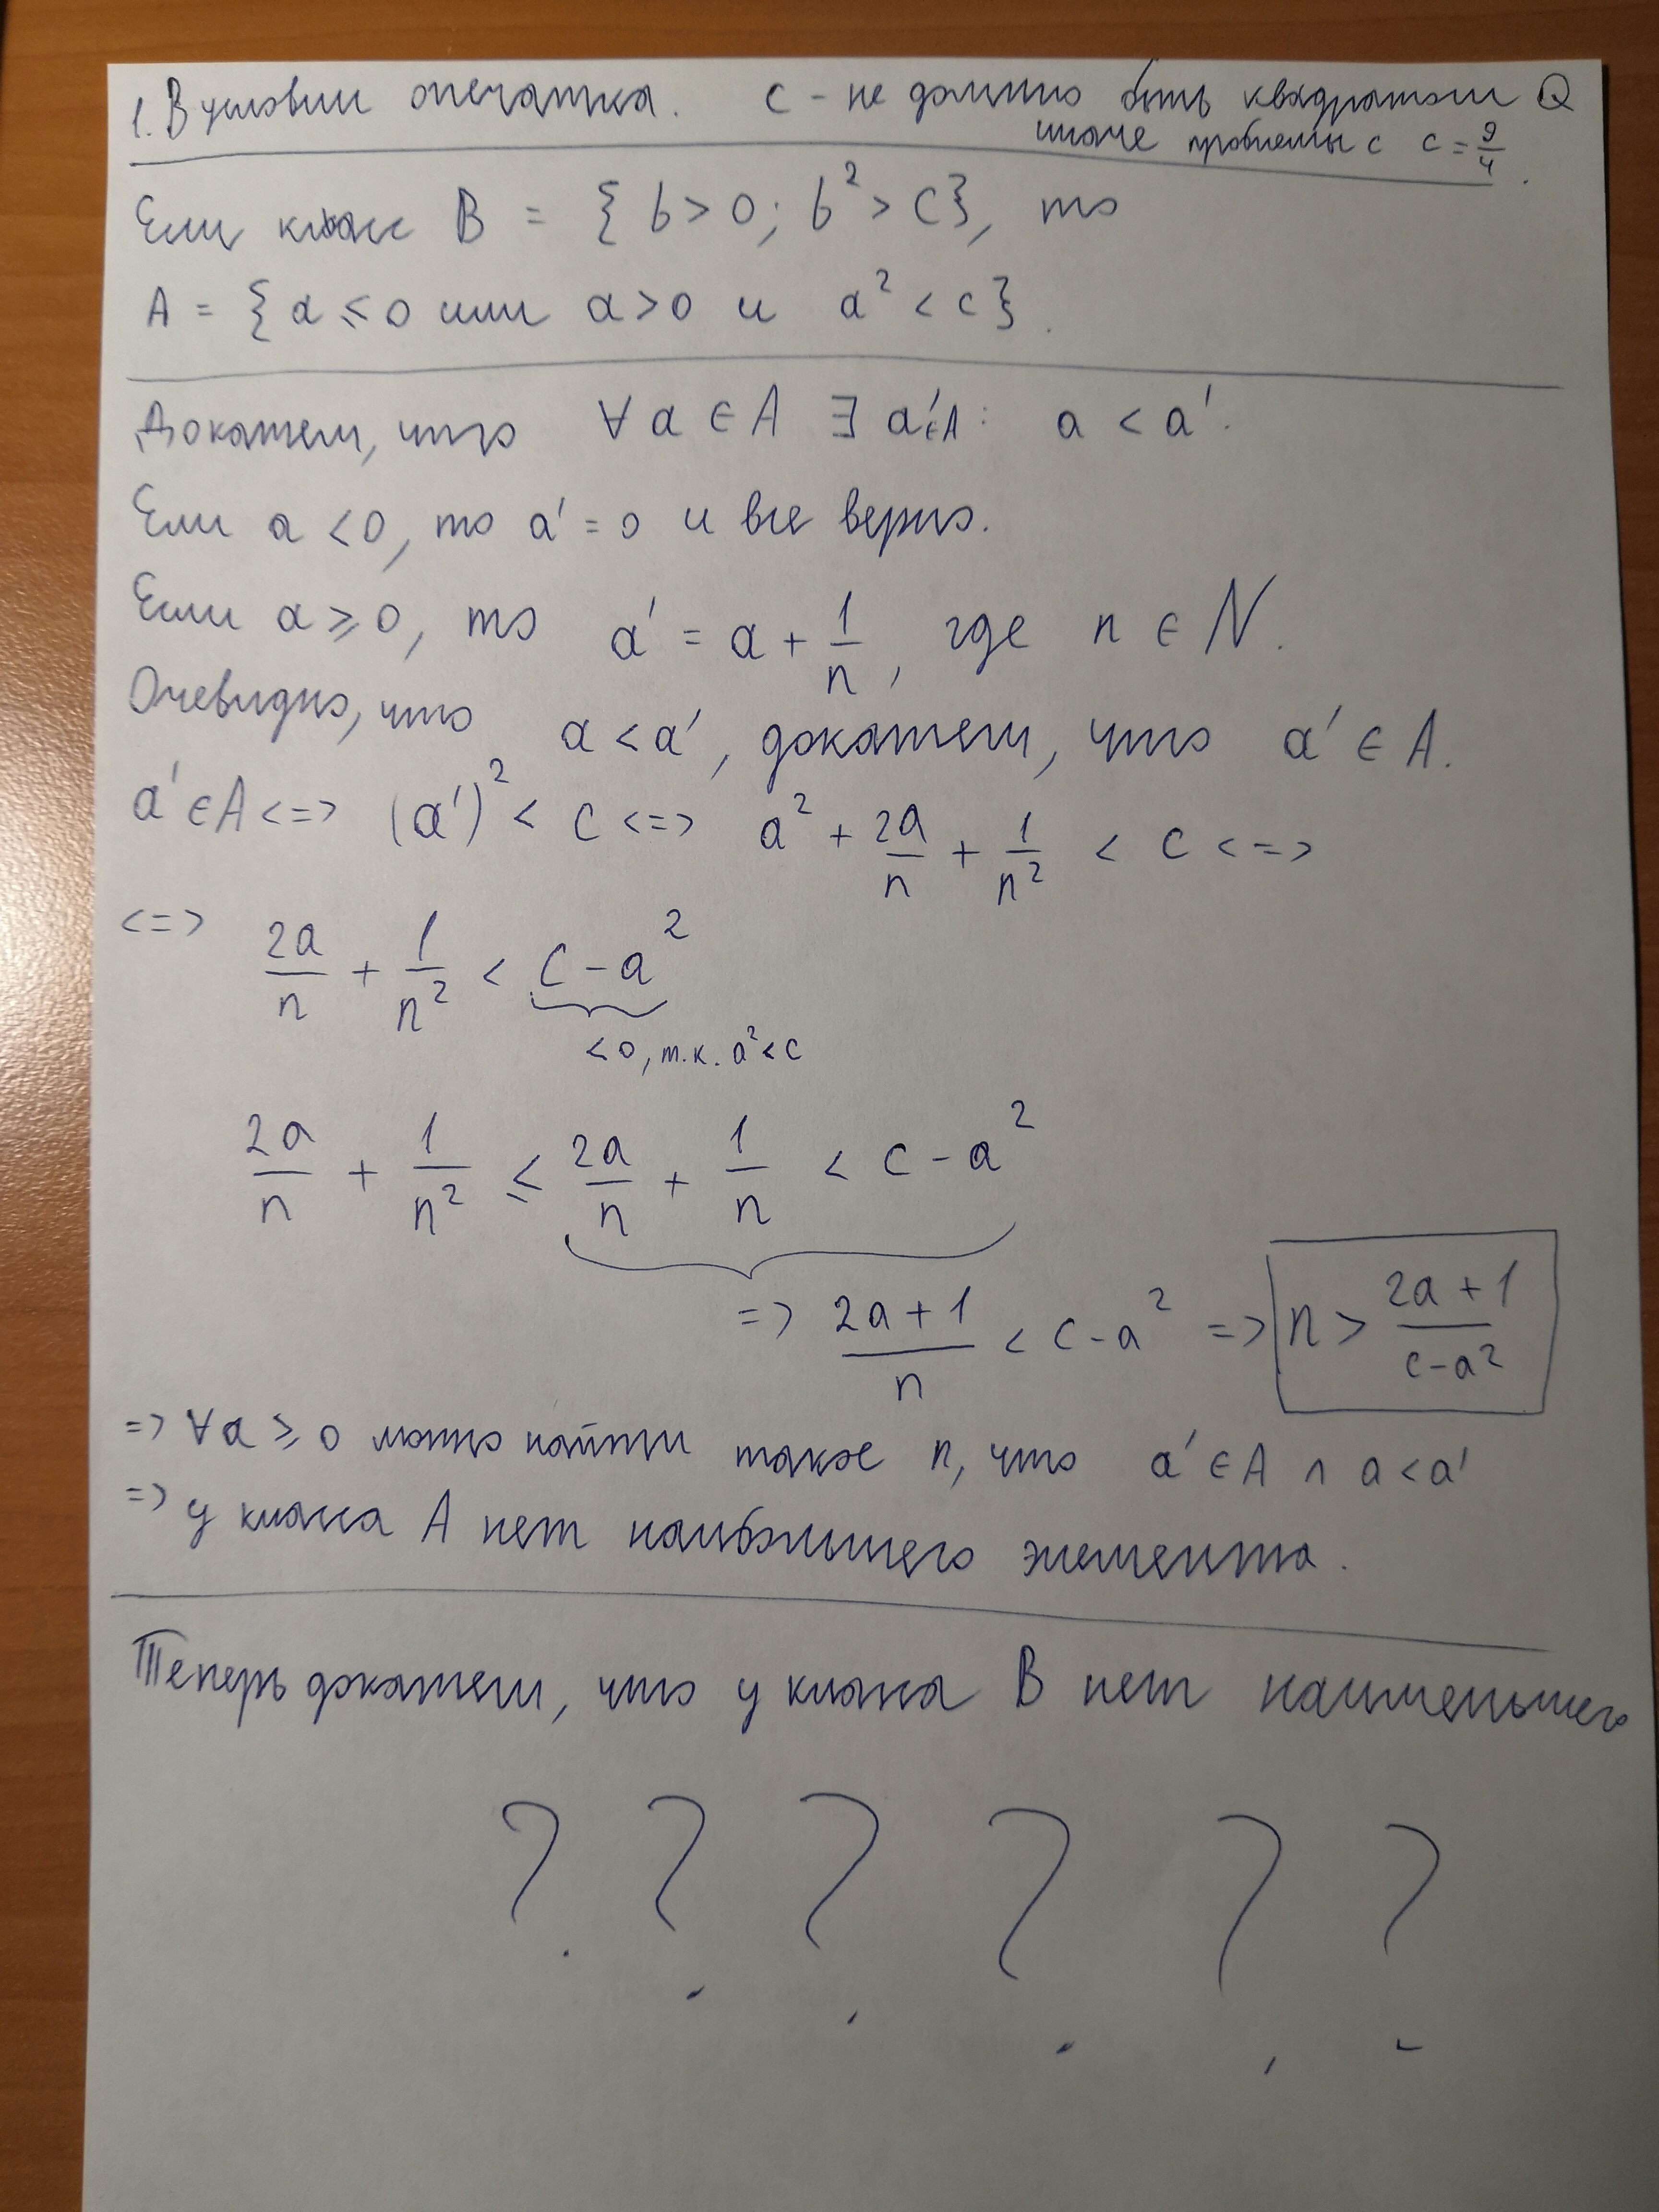 1. В условии опечатка. c - не должно быть квадратом Q
иначе проблемы с c = 9/4.
Если класс B = { b > 0; b² > C}, то
A = { a ⩽ 0 или a > 0 и a² < c}.
Докажем, что ∀ a ∈ A ∃ a'∈A: a < a'.
Если a < 0, то a' = 0 и все верно.
Если a ⩾ 0, то a' = a + 1/n, где n ∈ N.
Очевидно, что a < a', докажем, что a' ∈ A.
a' ∈ A <=> (a')² < C <=> a² + 2a/n + 1/n² < C <=>
<=> 2a/n + 1/n² < C - a²
< 0, т.к. a² < c
2a/n + 1/n² ≤ 2a/n + 1/n < c - a²
=> (2a + 1)/n < c - a² => n > (2a + 1)/(c - a²)
=> ∀a ⩾ 0 можно найти такое n, что a' ∈ A ∧ a < a'
=> у класса A нет наибольшего элемента.
Теперь докажем, что у класса B нет наименьшего
? ? ? ? ? ?